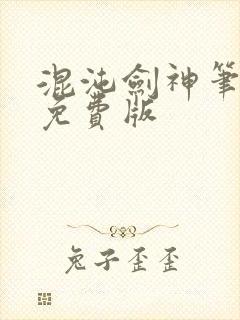 混沌劍神筆
免費版
兔子歪歪